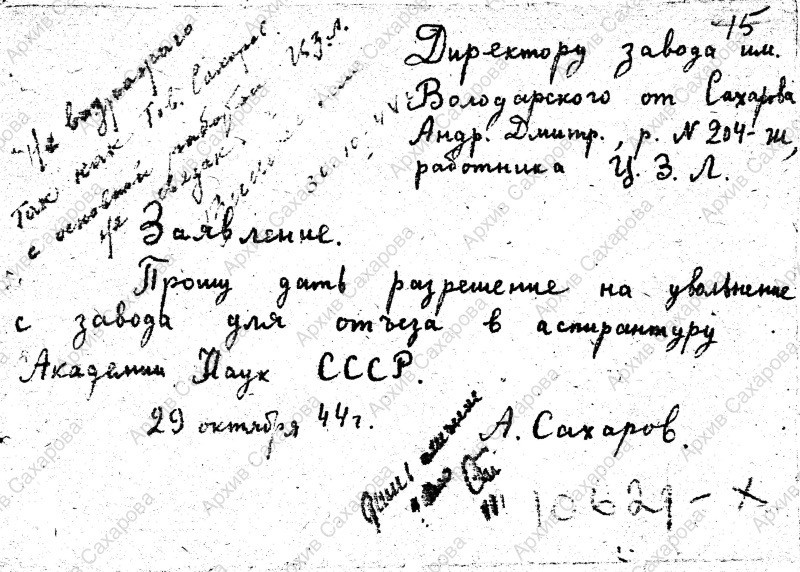 15
Директору завода им.
Володарского от Сахарова
Андр. Дмитр., р. N 204-ш,
работника Ц. З. Л.
"Не возражаю
так как тов. Сахаров
с основной работой ЦЗЛ.
не связан
30-10-44
Заявление.
Прошу дать разрешение на увольнение
с завода для отъезда в аспирантуру
Академии Наук СССР.
29 октября 44г.
А. Сахаров.
10621-х